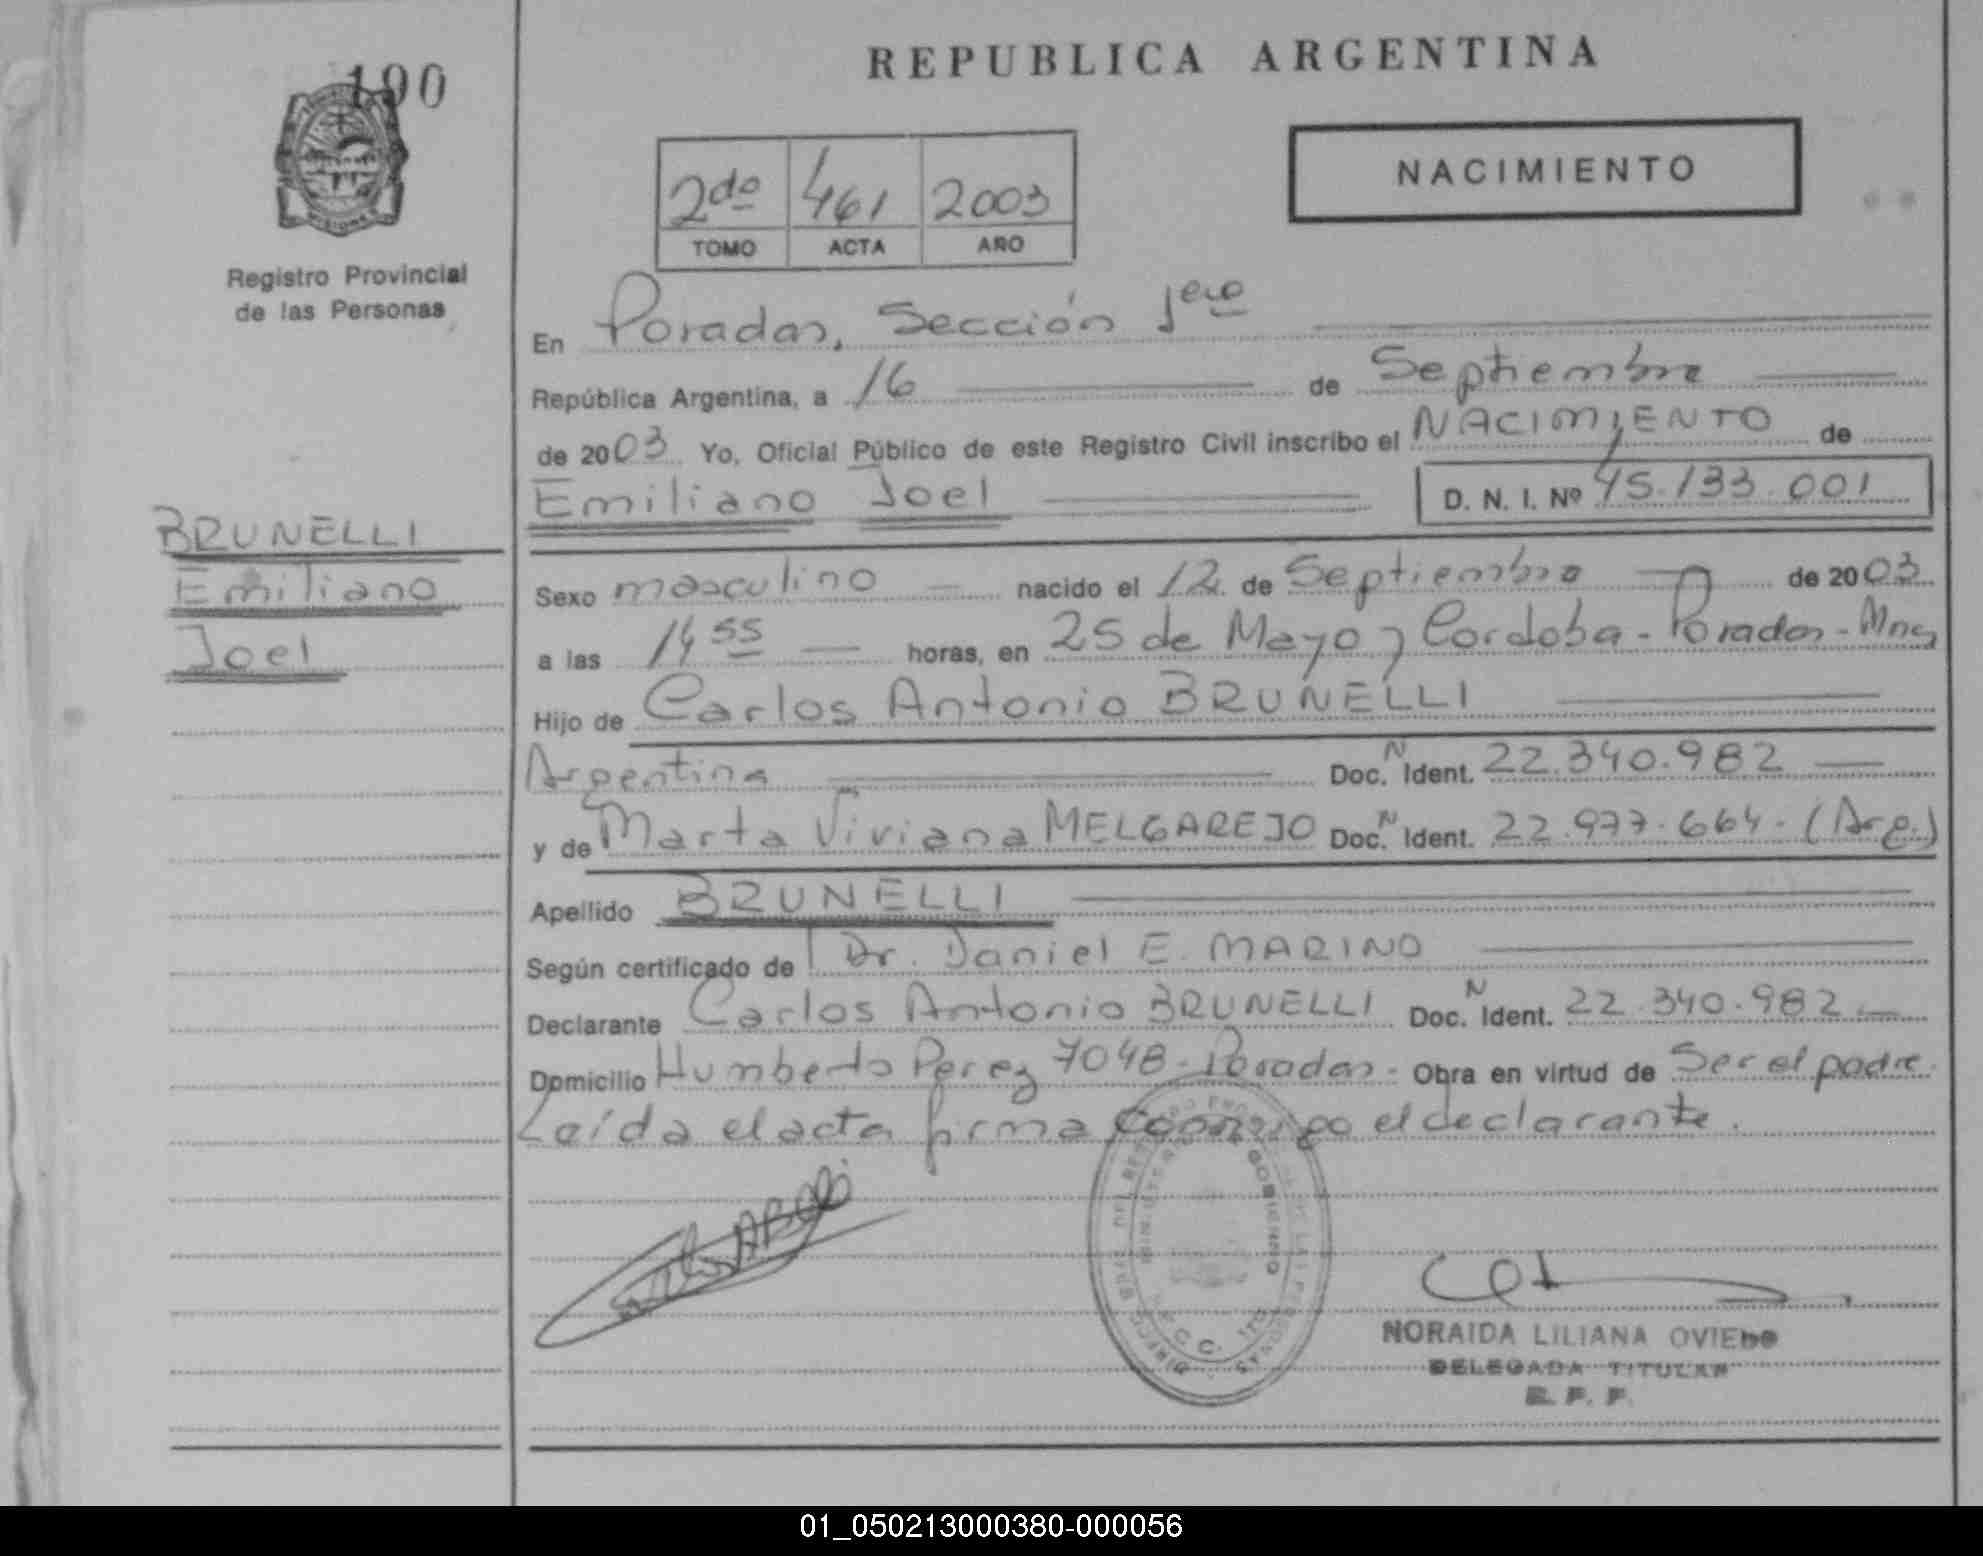 190
REPUBLICA ARGENTINA
NACIMIENTO
2do 461 2003
TOMO ACTA AÑO
MISIONES
Registro Provincial
de las Personas
En Posadas, Sección 1era
República Argentina, a 16 de Septiembre
de 2003 Yo, Oficial Público de este Registro Civil inscribo el NACIMIENTO de
Emiliano Joel D. N. I. Nº 45.133.001
BRUNELLI
Emiliano
Joel
Sexo masculino nacido el 12 de Septiembre de 2003
a las 14 55 horas, en 25 de Mayo y Cordoba - Posadas - Mnes
Hijo de Carlos Antonio BRUNELLI
Argentina Doc. N Ident. 22.340.982
y de Marta Viviana MELGAREJO Doc. N Ident. 22.977.664. (Arg.)
Apellido BRUNELLI
Según certificado de Dr. Daniel E. MARINO
Declarante Carlos Antonio BRUNELLI Doc. N Ident. 22.340.982
Domicilio Humberto Perez 7048 - Posadas - Obra en virtud de Ser el padre.
Leída el acta firma conmigo el declarante.
NORAIDA LILIANA OVIEDO
DELEGADA TITULAR
01_050213000380-000056